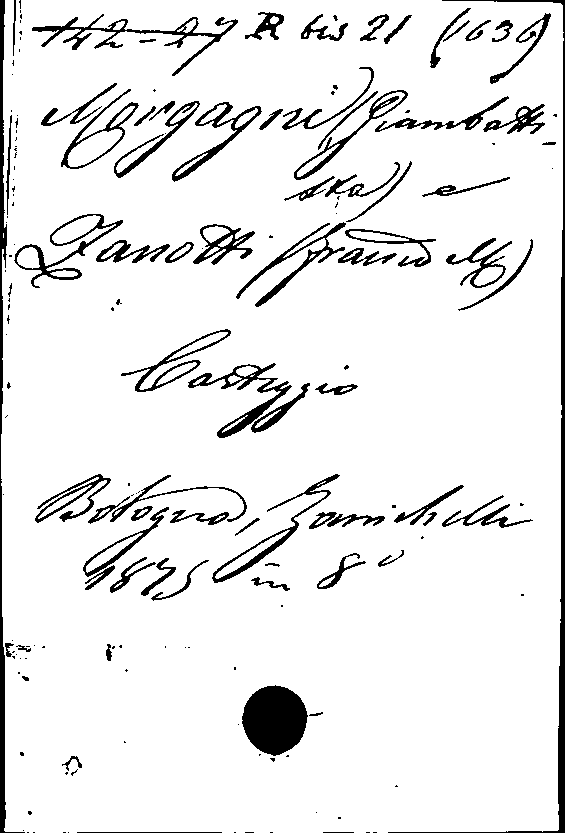 142-27 R bis 21 (1636)
Morgagni (Giambatti-
sta) e
Zanotti (Franco M)
Carteggio
Bologna, Zanichelli
1875 in 8°